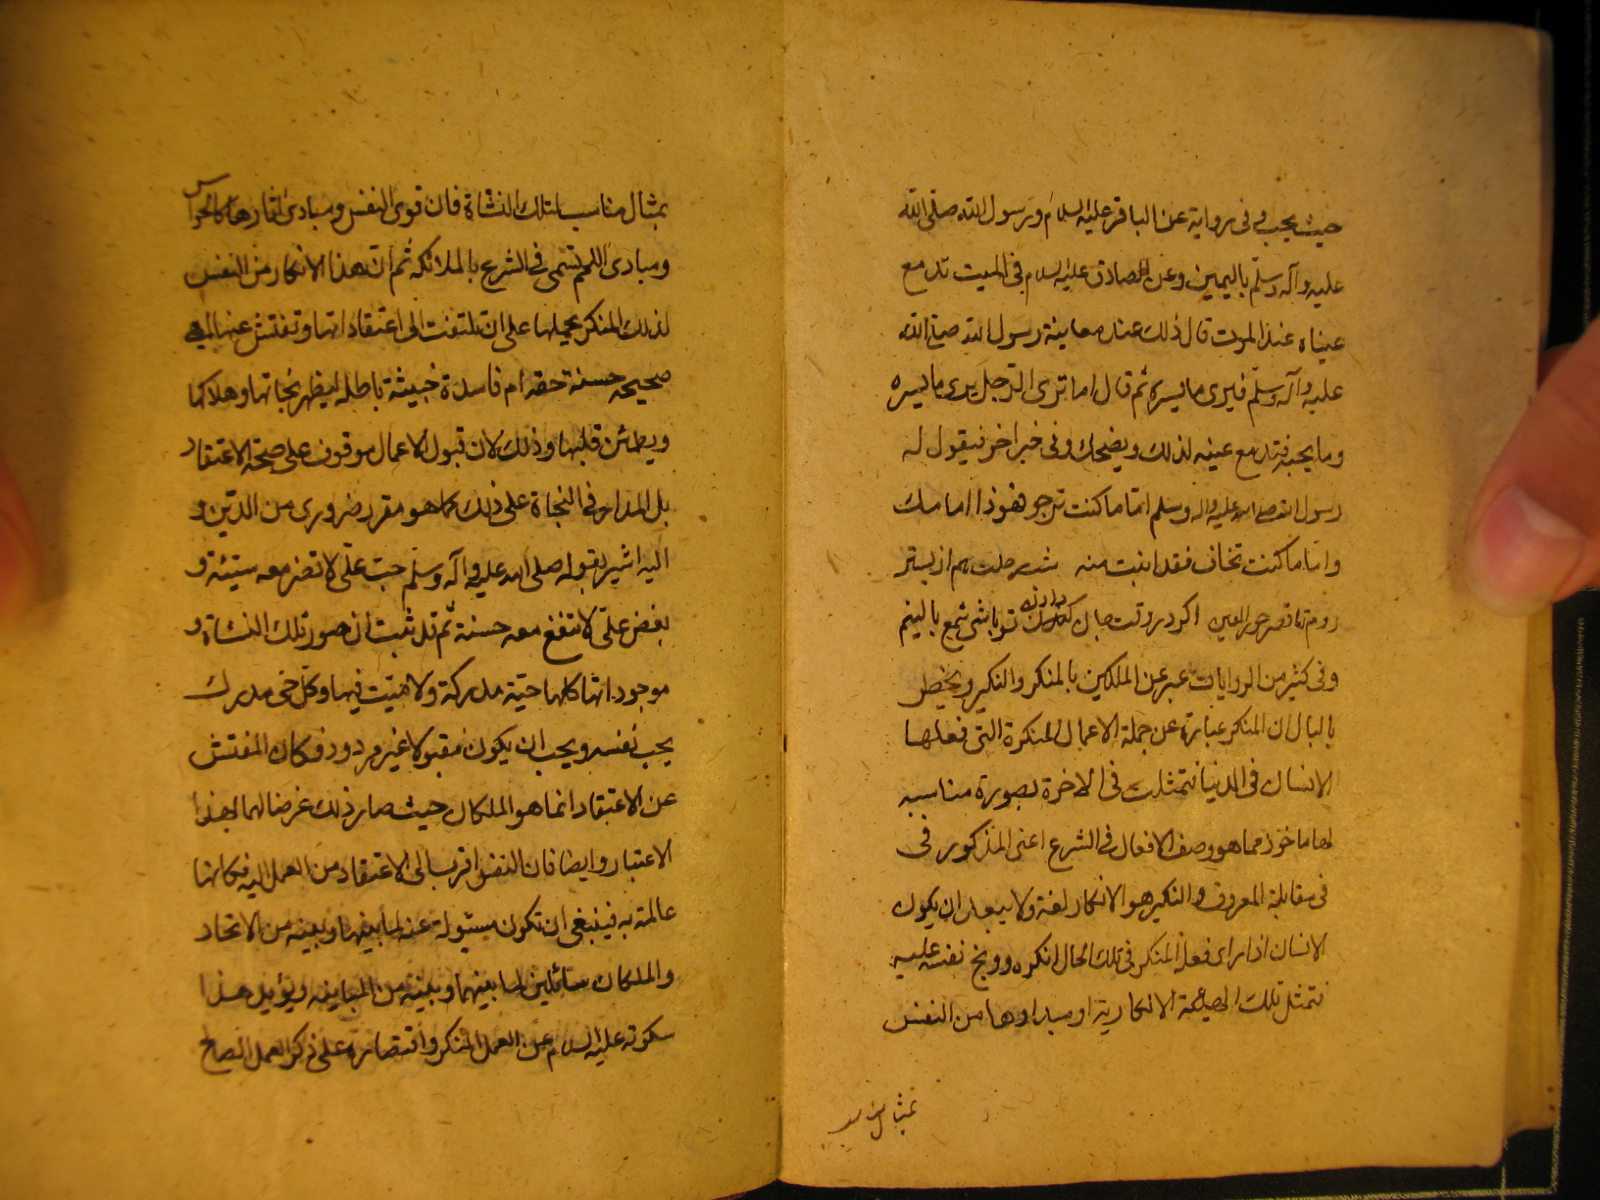 حيث يحب وفى رواية عن الباقر عليه السلام ورسول الله صلى الله
عليه وآله وسلم باليمين وعن الصادق عليه السلام فى الميت تدمع
عيناه عند الموت قال ذلك عند معاينة رسول الله صلى الله
عليه وآله وسلم فيرى ما يسره ثم قال اما ترى الرجل يرى ما يسره
وما يحبه فتدمع عينه لذلك ويضحك وفى خبر اخر فيقول له
رسول الله صلى الله عليه واله وسلم اما ما كنت ترجو فهوذا امامك
واما ما كنت تخاف فقد امنت منه شعر حلت هم از بستر
روم تا قصر حور العين اكر در وقت جان دادن تو باشى شمع بالينم
وفى كثير من الروايات عبر عن الملكين بالمنكر والنكير ويخطر
بالبال ان المنكر عبارة عن جملة الاعمال المنكرة التى فعلها
الانسان فى الدنيا فتمثلت فى الاخرة بصورة مناسبه
لها ماخوذ مما هو وصف الافعال فى الشرع اعنى المذكور فى
فى مقابلة المعروف والنكير هو الانكار لغة ولا يبعد ان يكون
الانسان اذا راى فعله المنكر فى تلك الحال انكره ووبخ نفسه عليه
فتمثل تلك الهيئة الانكارية او مبداوها من النفس
بمثال مناسب
بمثال مناسب لتلك النشاة فان قوى النفس ومبادئ اثارها كالحواس
ومبادى اللمم تسمى فى الشرع بالملائكه ثم ان هذا الانكار من النفس
لذلك المنكر يحملها على ان تلتفت الى اعتقاداتها وتفتش عنها اهى
صحيحه حسنة حقه ام فاسدة خبيثة باطله ليظهر نجاتها وهلاكها
ويطمئن قلبها وذلك لان قبول الاعمال موقوف على صحة الاعتقاد
بل المدار فى النجاة على ذلك كما هو مقرر ضرورى من الدين و
اليه اشير بقوله صلى الله عليه وآله وسلم حب على لا تضر معه سيئة و
بغض على لا تنفع معه حسنة ثم قد ثبت ان صور تلك النشاة و
موجوداتها كلها حية مدركة ولا ميت فيها وكل حى مدرك
يحب نفسه ويحب ان يكون مقبولا غير مردود فكان المفتش
عن الاعتقاد انما هو الملكان حيث صار ذلك غرضا لهما بهذا
الاعتبار وايضا فان النفس اقرب الى الاعتقاد من العمل اليه فكانها
عالمة به فينبغى ان تكون مسئولة عنه لما بينها وبينه من الاتحاد
والملكان سائلين لما بينهما وبينه من المباينه ويؤيد هذا
سكوته عليه السلام عن العمل المنكر واقتصاره على ذكر العمل الصالح